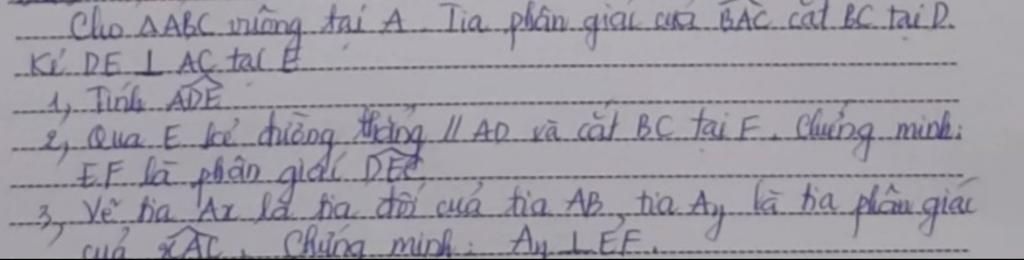 Cho ΔABC vuông tại A. Tia phân giác của BAC cắt BC tại D.
Kẻ DE ⊥ AC tại E
1, Tính ADE
2, Qua E kẻ đường thẳng // AD và cắt BC tại F. Chứng minh:
EF là phân giác DEC
3, Vẽ tia Ax là tia đối của tia AB, tia Ay là tia phân giác
của xAC. Chứng minh: Ay ⊥ EF.